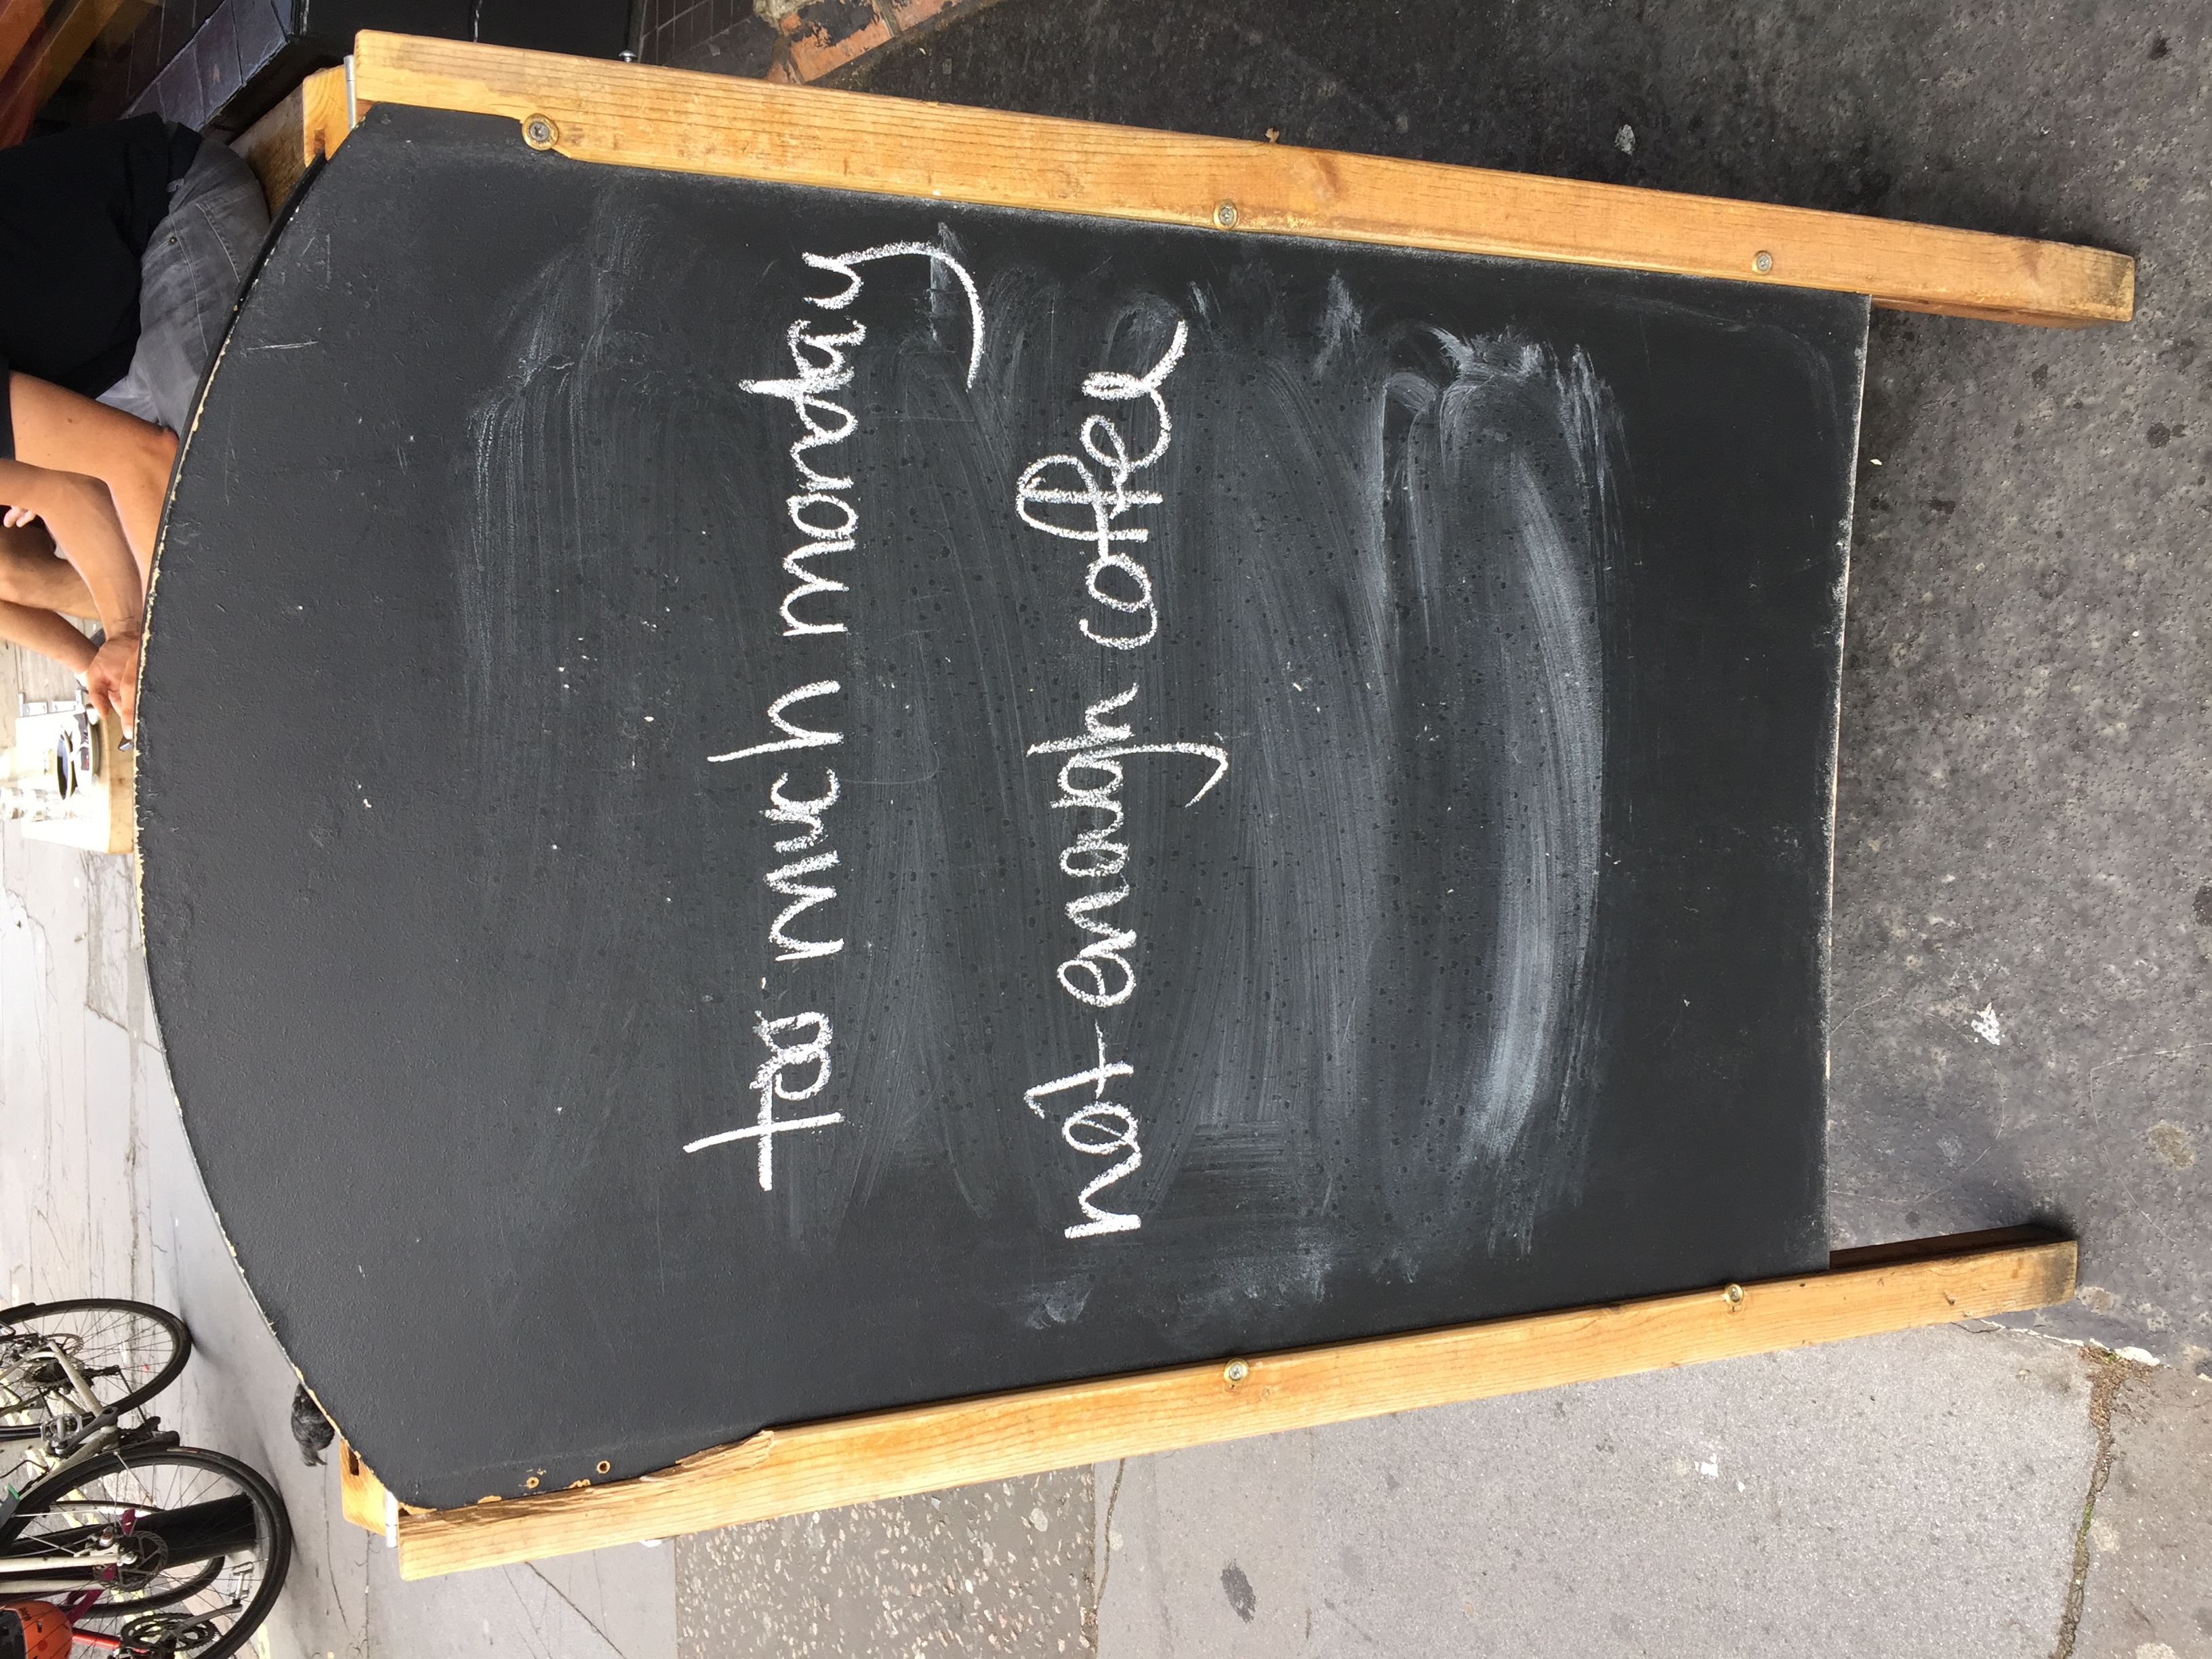 too much monday
not enough coffee